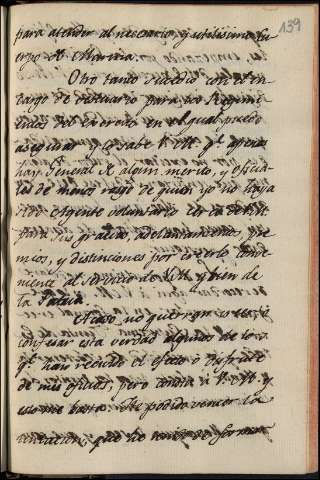 139
para atender al necesario, y utilisimo Cu-
erpo de Marina.
Otro tanto sucedio con el en-
cargo de vestuario para los Regimi-
entos del exercito en el qual puedo
asegurar, y sabe V. M. qe. apenas
hay General de algun merito, y oficia-
les de menor rango de quien yo no haya
sido Agente voluntario cerca de V. M.
sus gracias, adelantamientos, pre-
mios, y distinciones por creerlo conve-
niente al servicio de V. M. y bien de
la Patria.
Acaso no querran
confesar esta verdad algunos de los
qe. han recivido el efecto o disfrute
de mis oficios, pero consta a V. M. y
esto me basta. He podido vencer la
tentacion, que he tenido de formar